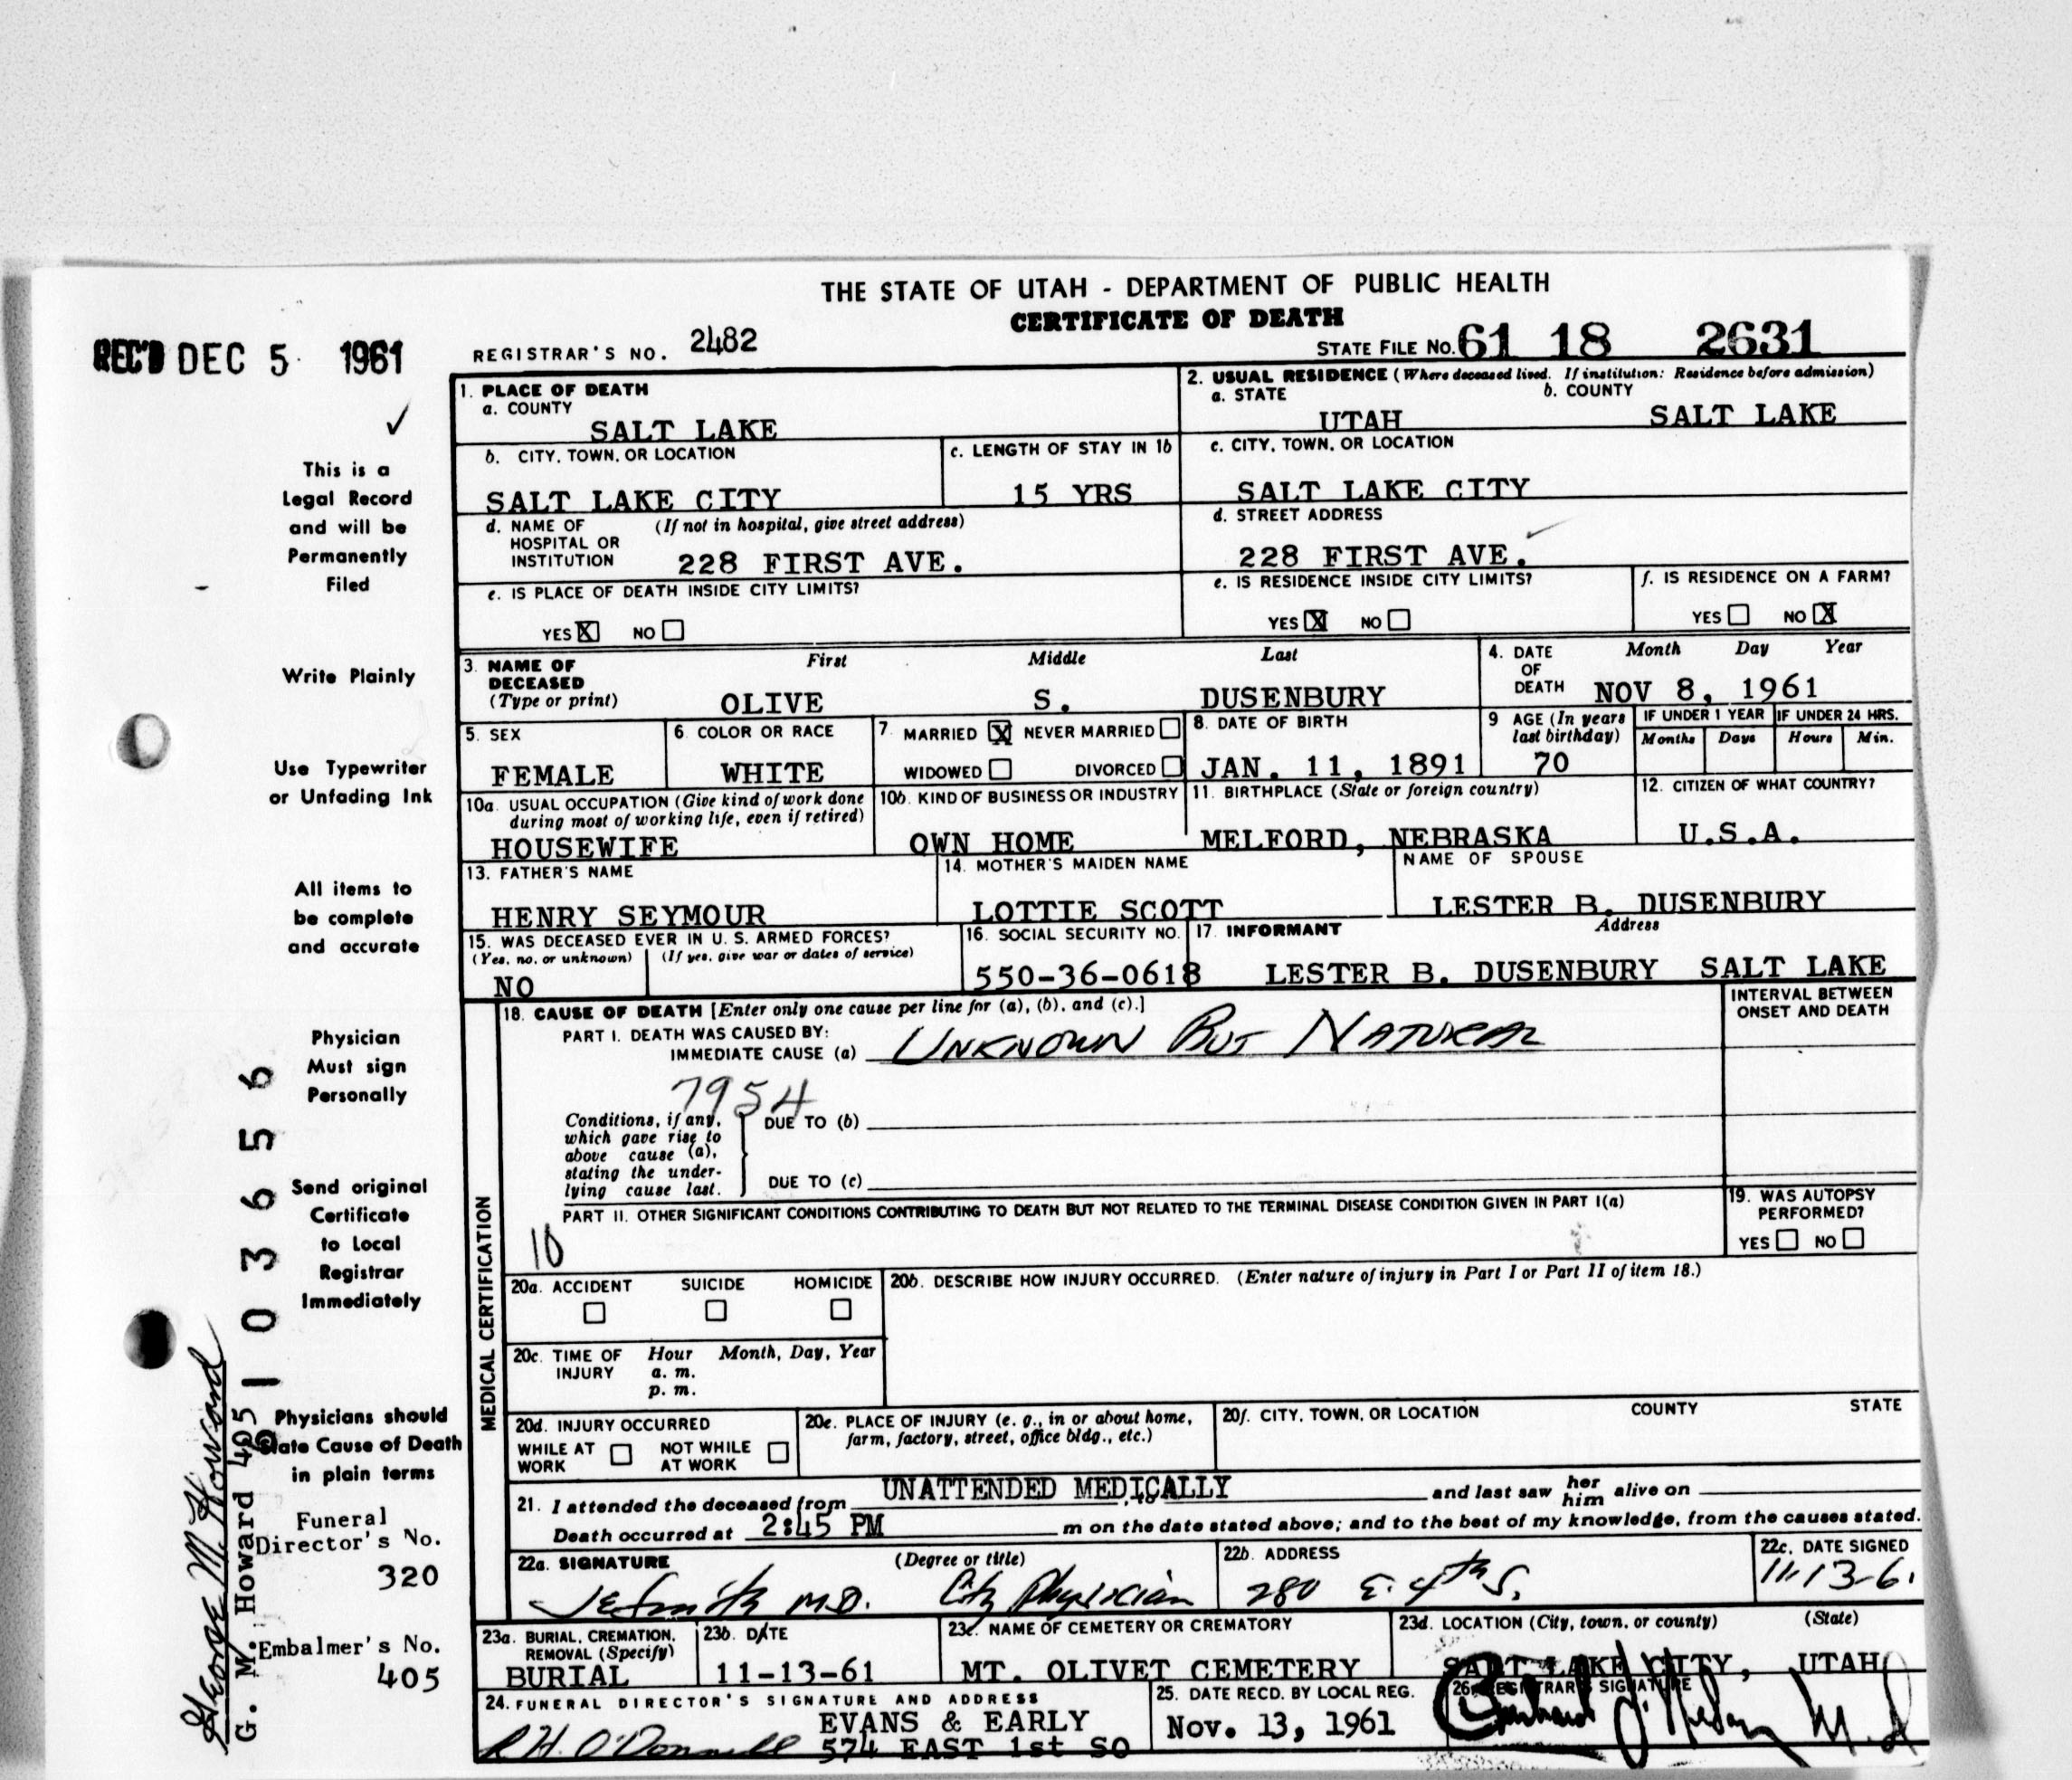 THE STATE OF UTAH - DEPARTMENT OF PUBLIC HEALTH
CERTIFICATE OF DEATH
REC'D DEC 5 1961
REGISTRAR'S NO. 2482
STATE FILE NO. 61 18 2631
This is a
Legal Record
and will be
Permanently
Filed
Write Plainly
Use Typewriter
or Unfading Ink
All items to
be complete
and accurate
Physician
Must sign
Personally
Send original
Certificate
to Local
Registrar
Immediately
Physicians should
State Cause of Death
in plain terms
Funeral
Director's No.
320
Embalmer's No.
405
George M. Howard
G. M. Howard 405
6103656
1. PLACE OF DEATH
a. COUNTY
SALT LAKE
b. CITY, TOWN, OR LOCATION
SALT LAKE CITY
c. LENGTH OF STAY IN 1b
15 YRS
d. NAME OF HOSPITAL OR INSTITUTION (If not in hospital, give street address)
228 FIRST AVE.
e. IS PLACE OF DEATH INSIDE CITY LIMITS?
YES X NO
2. USUAL RESIDENCE (Where deceased lived. If institution: Residence before admission)
a. STATE
UTAH
b. COUNTY
SALT LAKE
c. CITY, TOWN, OR LOCATION
SALT LAKE CITY
d. STREET ADDRESS
228 FIRST AVE.
e. IS RESIDENCE INSIDE CITY LIMITS?
YES X NO
f. IS RESIDENCE ON A FARM?
YES NO X
3. NAME OF DECEASED (Type or print)
First Middle Last
OLIVE S. DUSENBURY
4. DATE OF DEATH
Month Day Year
NOV 8, 1961
5. SEX
FEMALE
6. COLOR OR RACE
WHITE
7. MARRIED X NEVER MARRIED
WIDOWED DIVORCED
8. DATE OF BIRTH
JAN. 11, 1891
9 AGE (In years last birthday)
70
IF UNDER 1 YEAR
Months Days
IF UNDER 24 HRS.
Hours Min.
10a. USUAL OCCUPATION (Give kind of work done
during most of working life, even if retired)
HOUSEWIFE
10b. KIND OF BUSINESS OR INDUSTRY
OWN HOME
11. BIRTHPLACE (State or foreign country)
MELFORD, NEBRASKA
12. CITIZEN OF WHAT COUNTRY?
U.S.A.
13. FATHER'S NAME
HENRY SEYMOUR
14. MOTHER'S MAIDEN NAME
LOTTIE SCOTT
NAME OF SPOUSE
LESTER B. DUSENBURY
15. WAS DECEASED EVER IN U. S. ARMED FORCES?
(Yes, no, or unknown) (If yes, give war or dates of service)
NO
16. SOCIAL SECURITY NO.
550-36-0618
17. INFORMANT Address
LESTER B. DUSENBURY SALT LAKE
MEDICAL CERTIFICATION
18. CAUSE OF DEATH [Enter only one cause per line for (a), (b), and (c).]
PART I. DEATH WAS CAUSED BY:
IMMEDIATE CAUSE (a) UNKNOWN BUT NATURAL
INTERVAL BETWEEN
ONSET AND DEATH
7954
Conditions, if any,
which gave rise to
above cause (a),
stating the under-
lying cause last.
DUE TO (b)
DUE TO (c)
PART II. OTHER SIGNIFICANT CONDITIONS CONTRIBUTING TO DEATH BUT NOT RELATED TO THE TERMINAL DISEASE CONDITION GIVEN IN PART I(a)
10
19. WAS AUTOPSY
PERFORMED?
YES NO
20a. ACCIDENT SUICIDE HOMICIDE
20b. DESCRIBE HOW INJURY OCCURRED. (Enter nature of injury in Part I or Part II of item 18.)
20c. TIME OF INJURY
Hour Month, Day, Year
a. m.
p. m.
20d. INJURY OCCURRED
WHILE AT WORK NOT WHILE AT WORK
20e. PLACE OF INJURY (e. g., in or about home,
farm, factory, street, office bldg., etc.)
20f. CITY, TOWN, OR LOCATION COUNTY STATE
21. I attended the deceased from UNATTENDED MEDICALLY to and last saw her him alive on
Death occurred at 2:45 PM m on the date stated above; and to the best of my knowledge, from the causes stated.
22a. SIGNATURE (Degree or title)
JE Smith M.D. City Physician
22b. ADDRESS
280 E. 4th S.
22c. DATE SIGNED
11-13-6.
23a. BURIAL, CREMATION,
REMOVAL (Specify)
BURIAL
23b. DATE
11-13-61
23c. NAME OF CEMETERY OR CREMATORY
MT. OLIVET CEMETERY
23d. LOCATION (City, town, or county) (State)
SALT LAKE CITY, UTAH
24. FUNERAL DIRECTOR'S SIGNATURE AND ADDRESS
R H. O'Donnell
EVANS & EARLY
574 EAST 1st SO
25. DATE RECD. BY LOCAL REG.
Nov. 13, 1961
26. REGISTRAR'S SIGNATURE
M.D